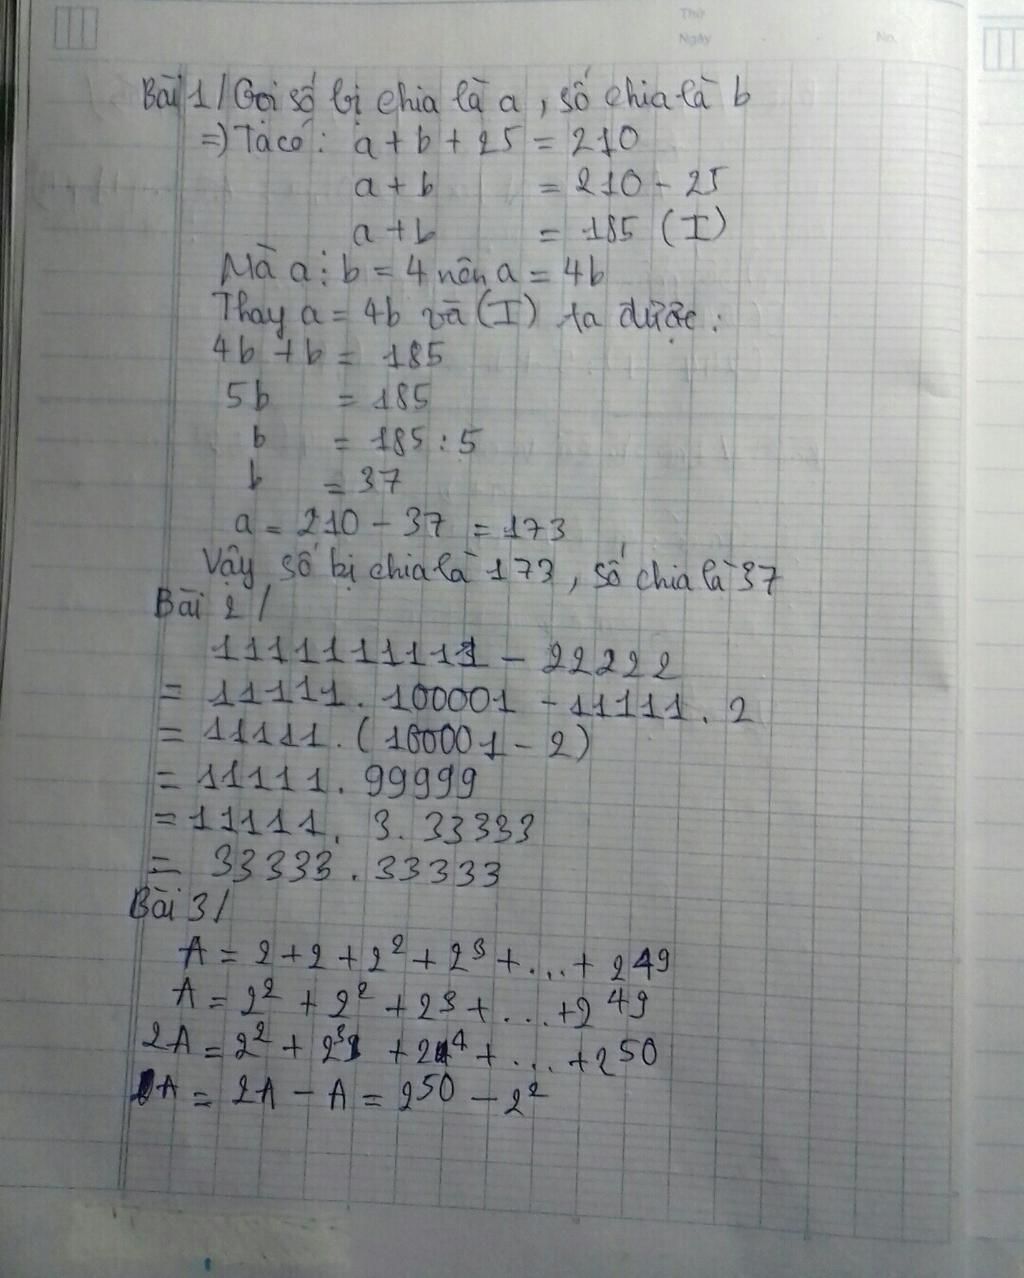 Thứ
Ngày
No.
Bài 1/ Gọi số bị chia là a, số chia là b
=) Ta có: a + b + 25 = 210
a + b = 210 - 25
a + b = 185 (I)
Mà a : b = 4 nên a = 4b
Thay a = 4b và (I) ta được:
4b + b = 185
5b = 185
b = 185 : 5
b = 37
a = 210 - 37 = 173
Vậy số bị chia là 173, số chia là 37
Bài 2/
1111111111 - 22222
= 11111. 100001 - 11111. 2
= 11111. (100001 - 2)
= 11111. 99999
= 11111. 3. 33333
= 33333. 33333
Bài 3/
A = 2 + 2 + 2² + 2³ + ... + 2⁴⁹
A = 2² + 2² + 2³ + ... + 2⁴⁹
2A = 2² + 2³ + 2⁴ + ... + 2⁵⁰
A = 2A - A = 2⁵⁰ - 2²